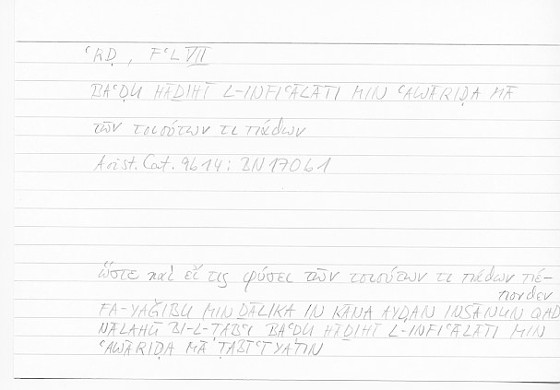 ʿRḌ, FʿL VII
BAʿḌU HĀḎIHĪ L-INFIʿĀLĀTI MIN ʿAWĀRIḌA MĀ
τῶν τοιούτων τι πάθων
Arist. Cat. 9b14: BN 170b1
ὥστε καὶ εἴ τις φύσει τῶν τοιούτων τι πάθων πέ-
πονθεν
FA-YAǦIBU MIN ḎĀLIKA IN KĀNA AYḌAN INSĀNUN QAD
NĀLAHŪ BI-L-ṬABʿI BAʿḌU HĀḎIHĪ L-INFIʿĀLĀTI MIN
ʿAWĀRIḌA MĀ ṬABĪʿĪYATIN